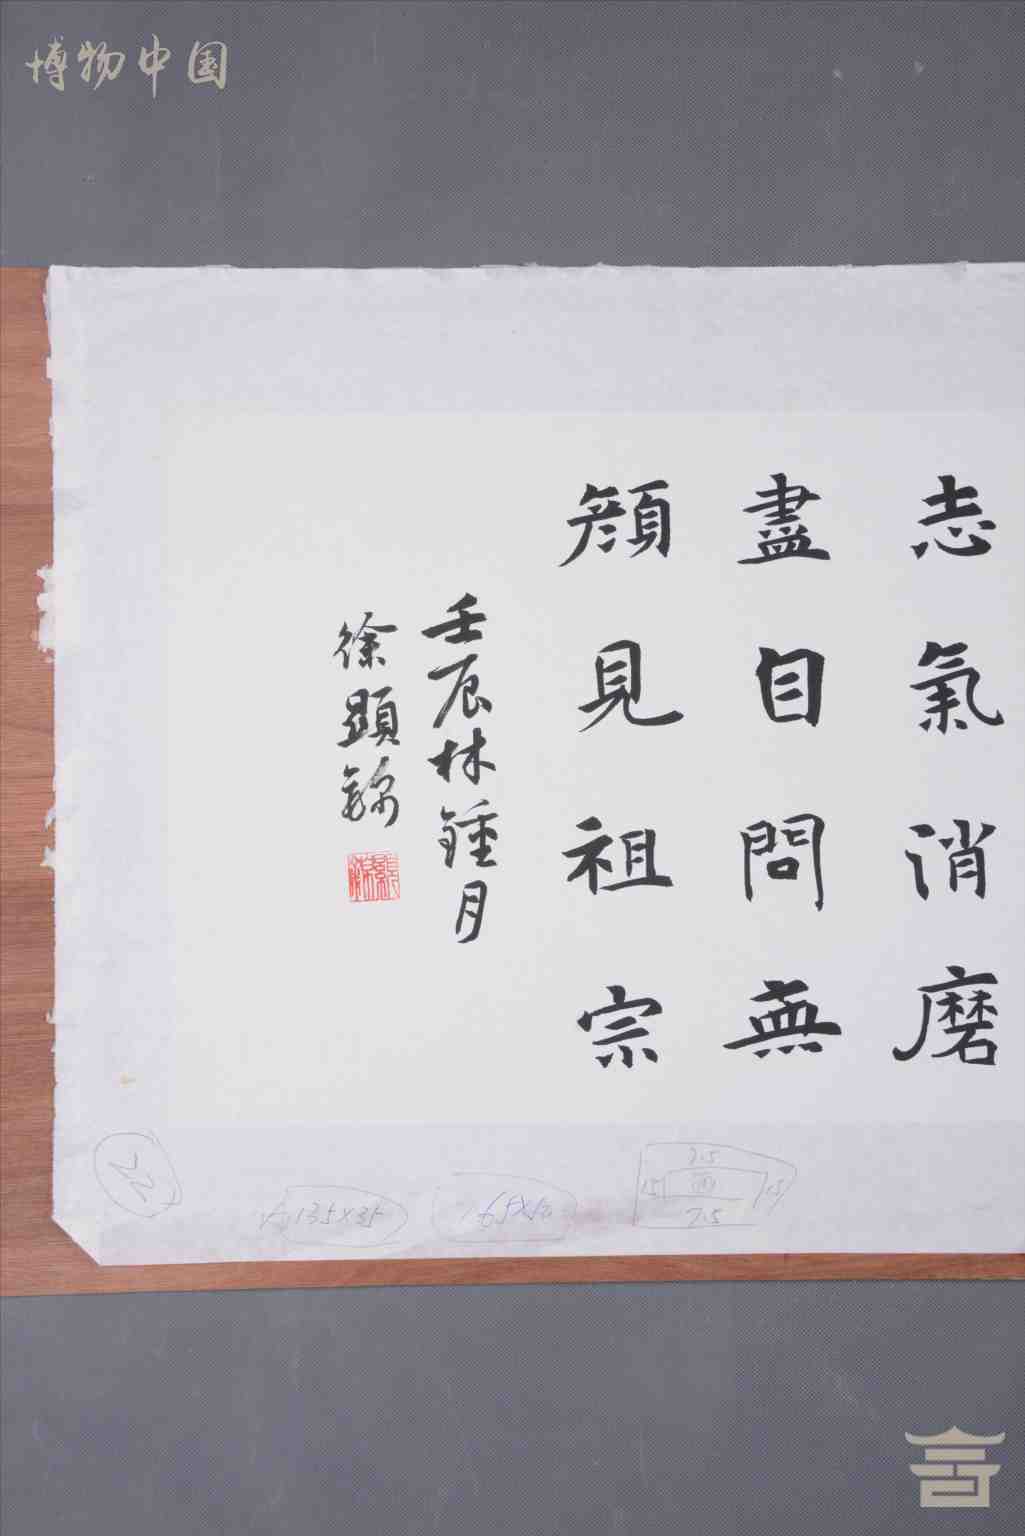 博物中国
志氣消磨
盡自問無
顔見祖宗
壬辰林鍾月
徐顯
22
135×35
165×50
7.5
15
15
7.5